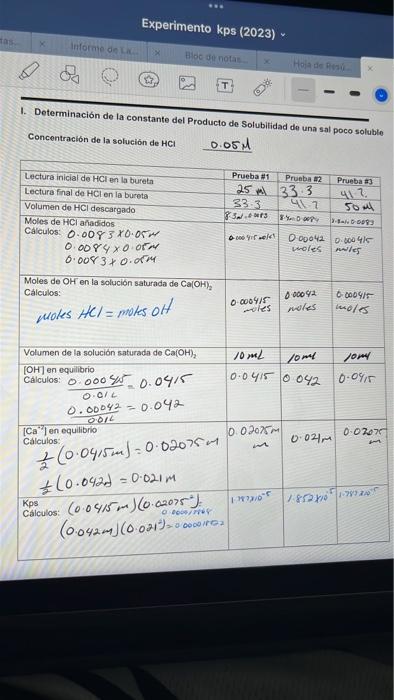 Experimento kps (2023)
Informe de La...
Bloc de notas...
Hoja de Resú...
I. Determinación de la constante del Producto de Solubilidad de una sal poco soluble
Concentración de la solución de HCl 0.05M
Prueba #1 Prueba #2 Prueba #3
Lectura inicial de HCl en la bureta 25 ml 33.3 41.7
Lectura final de HCl en la bureta 33.3 41.7 50 ml
Volumen de HCl descargado
Moles de HCl añadidos
Cálculos: 0.0083 x 0.05M 0.000415 moles 0.00042 moles 0.000415 moles
0.0084 x 0.05M
0.0083 x 0.05M
Moles de OH⁻ en la solución saturada de Ca(OH)₂
Cálculos: 0.000415 moles 0.00042 moles 0.000415 moles
moles HCl = moles OH
Volumen de la solución saturada de Ca(OH)₂ 10 mL 10 mL 10 ml
[OH⁻] en equilibrio 0.0415 0.042 0.0415
Cálculos: 0.000415 / 0.01L = 0.0415
0.00042 / 0.01L = 0.042
[Ca⁺²] en equilibrio 0.02075M 0.021M 0.02075 m
Cálculos:
1/2 (0.0415m) = 0.02075M
1/2 (0.042) = 0.021M
Kps 1.787x10⁻⁵ 1.852x10⁻⁵ 1.787x10⁻⁵
Cálculos: (0.0415m)(0.02075²)=
(0.042m)(0.021²)=